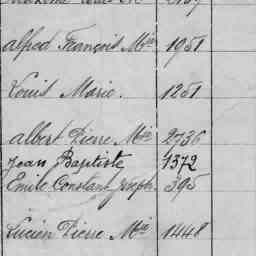 Alfred François M<sup>ie</sup> 1951
Louis Marie. 1251
Albert Pierre M<sup>ie</sup> 2736
Jean Baptiste 1372
Emile Constant Joseph. 395
Lucien Pierre M<sup>ie</sup> 1448